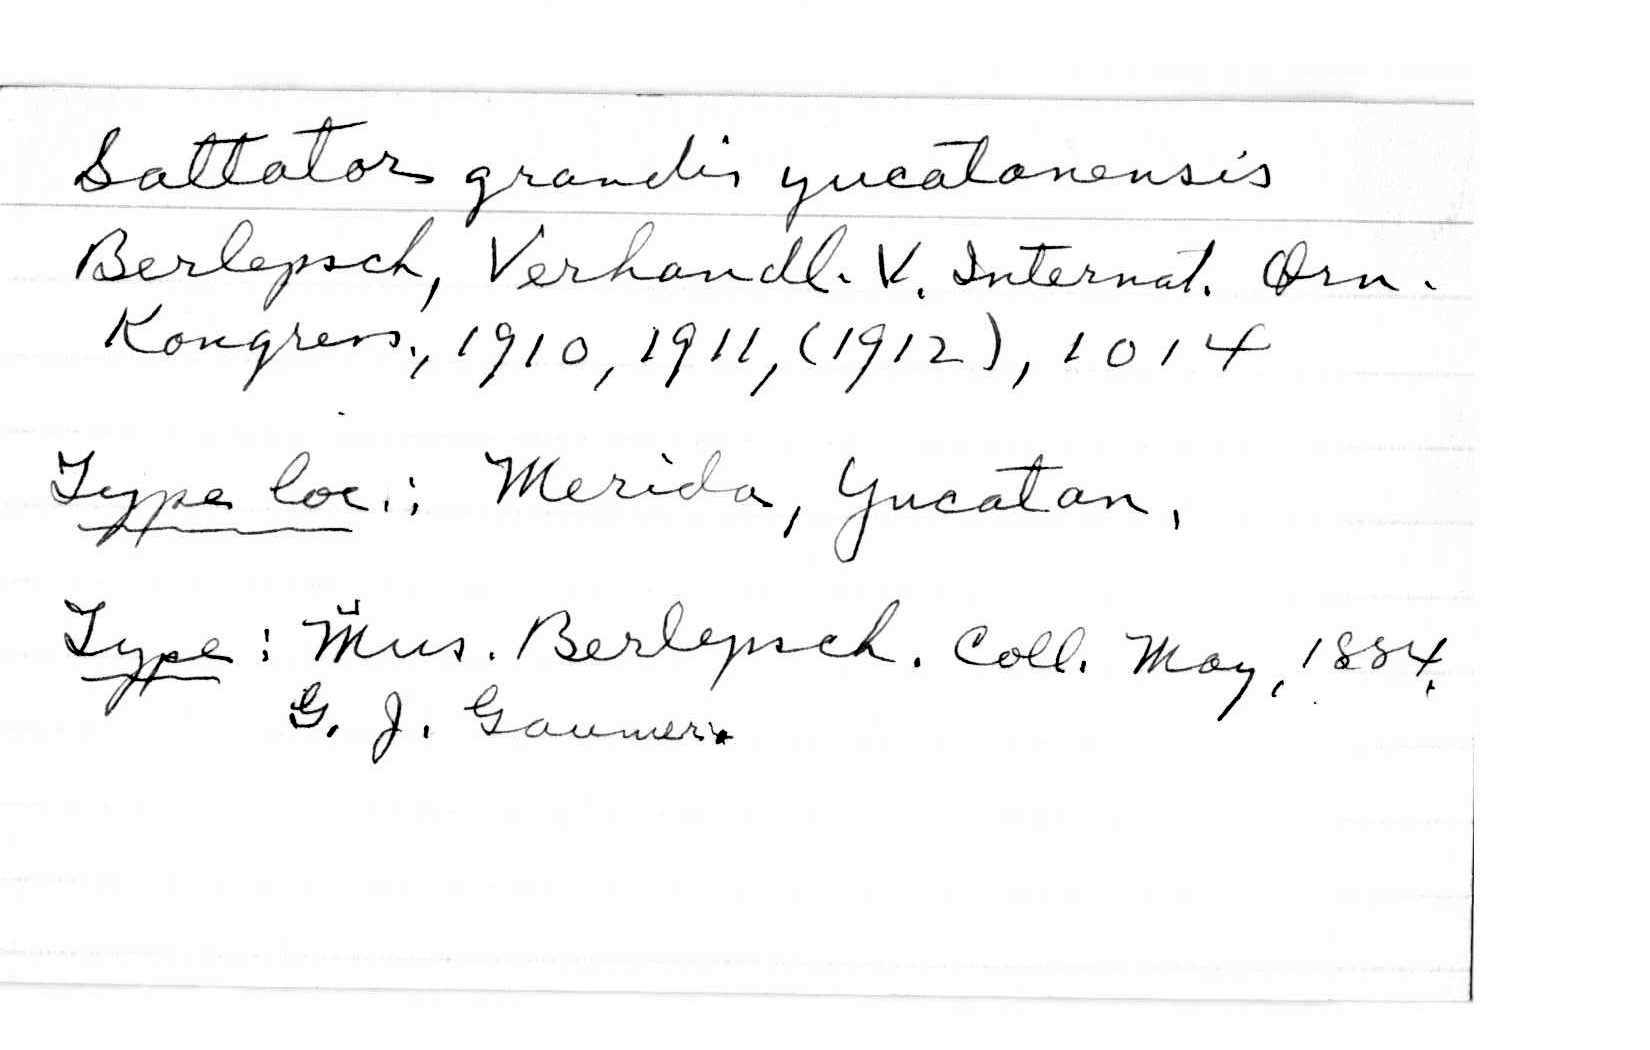 Saltator grandis yucatanensis
Berlepsch, Verhandl. V. Internat. Orn.
Kongress, 1910, 1911, (1912), 1014
Type loc.: Merida, Yucatan,
Type: Mus. Berlepsch. Coll. May, 1884,
G. J. Gaumer.